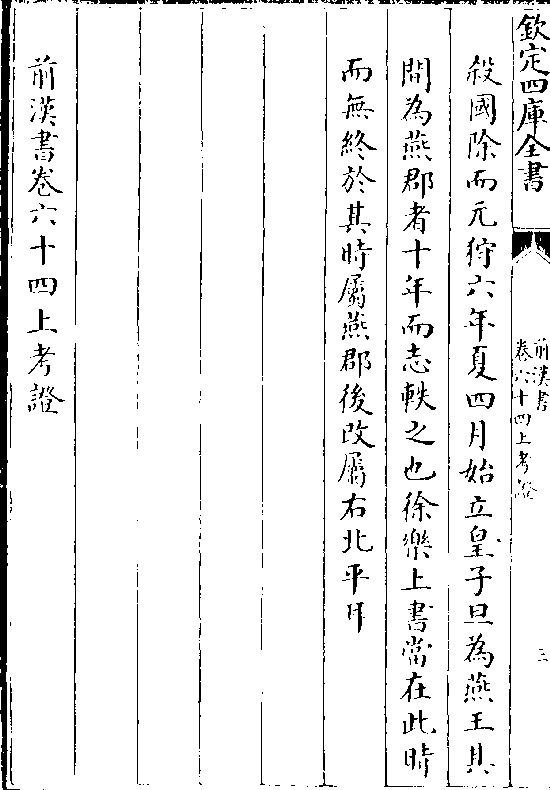 欽定四庫全書
前漢書
卷六十四上考證
三
殺國除而元狩六年夏四月始立皇子旦為燕王其
間為燕郡者十年而志軼之也徐樂上書當在此時
而無終於其時屬燕郡後改屬右北平耳
前漢書卷六十四上考證